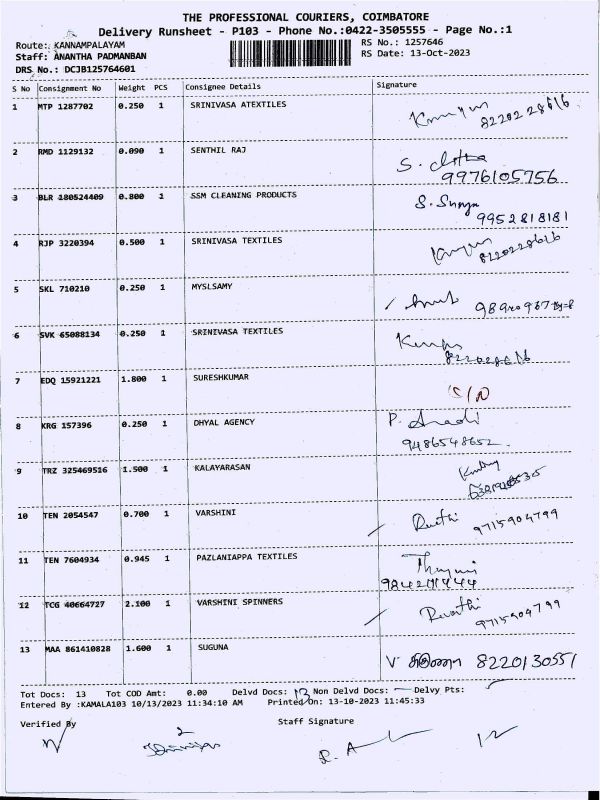 THE PROFESSIONAL COURIERS, COIMBATORE
Delivery Runsheet - P103 - Phone No.:0422-3505555 - Page No.:1
Route: KANNAMPALAYAM RS No.: 1257646
Staff: ANANTHA PADMANBAN RS Date: 13-Oct-2023
DRS No.: DCJB125764601
S No Consignment No Weight PCS Consignee Details Signature
1 MTP 1287702 0.250 1 SRINIVASA ATEXTILES
2 RMD 1129132 0.090 1 SENTHIL RAJ
9976105756
3 BLR 180524409 0.800 1 SSM CLEANING PRODUCTS S. Surya
9952818181
4 RJP 3220394 0.500 1 SRINIVASA TEXTILES
8220228616
5 SKL 710210 0.250 1 MYSLSAMY
6 SVK 65088134 0.250 1 SRINIVASA TEXTILES
7 EDQ 15921221 1.800 1 SURESHKUMAR
8 KRG 157396 0.250 1 DHYAL AGENCY P.
9486548652
9 TRZ 325469516 1.500 1 KALAYARASAN
10 TEN 2054547 0.700 1 VARSHINI
9715904799
11 TEN 7604934 0.945 1 PAZLANIAPPA TEXTILES
12 TCG 40664727 2.100 1 VARSHINI SPINNERS Revathi
9715904799
13 MAA 861410828 1.600 1 SUGUNA V 8220130551
Tot Docs: 13 Tot COD Amt: 0.00 Delvd Docs: 13 Non Delvd Docs: — Delvy Pts:
Entered By :KAMALA103 10/13/2023 11:34:10 AM Printed On: 13-10-2023 11:45:33
Verified By Staff Signature